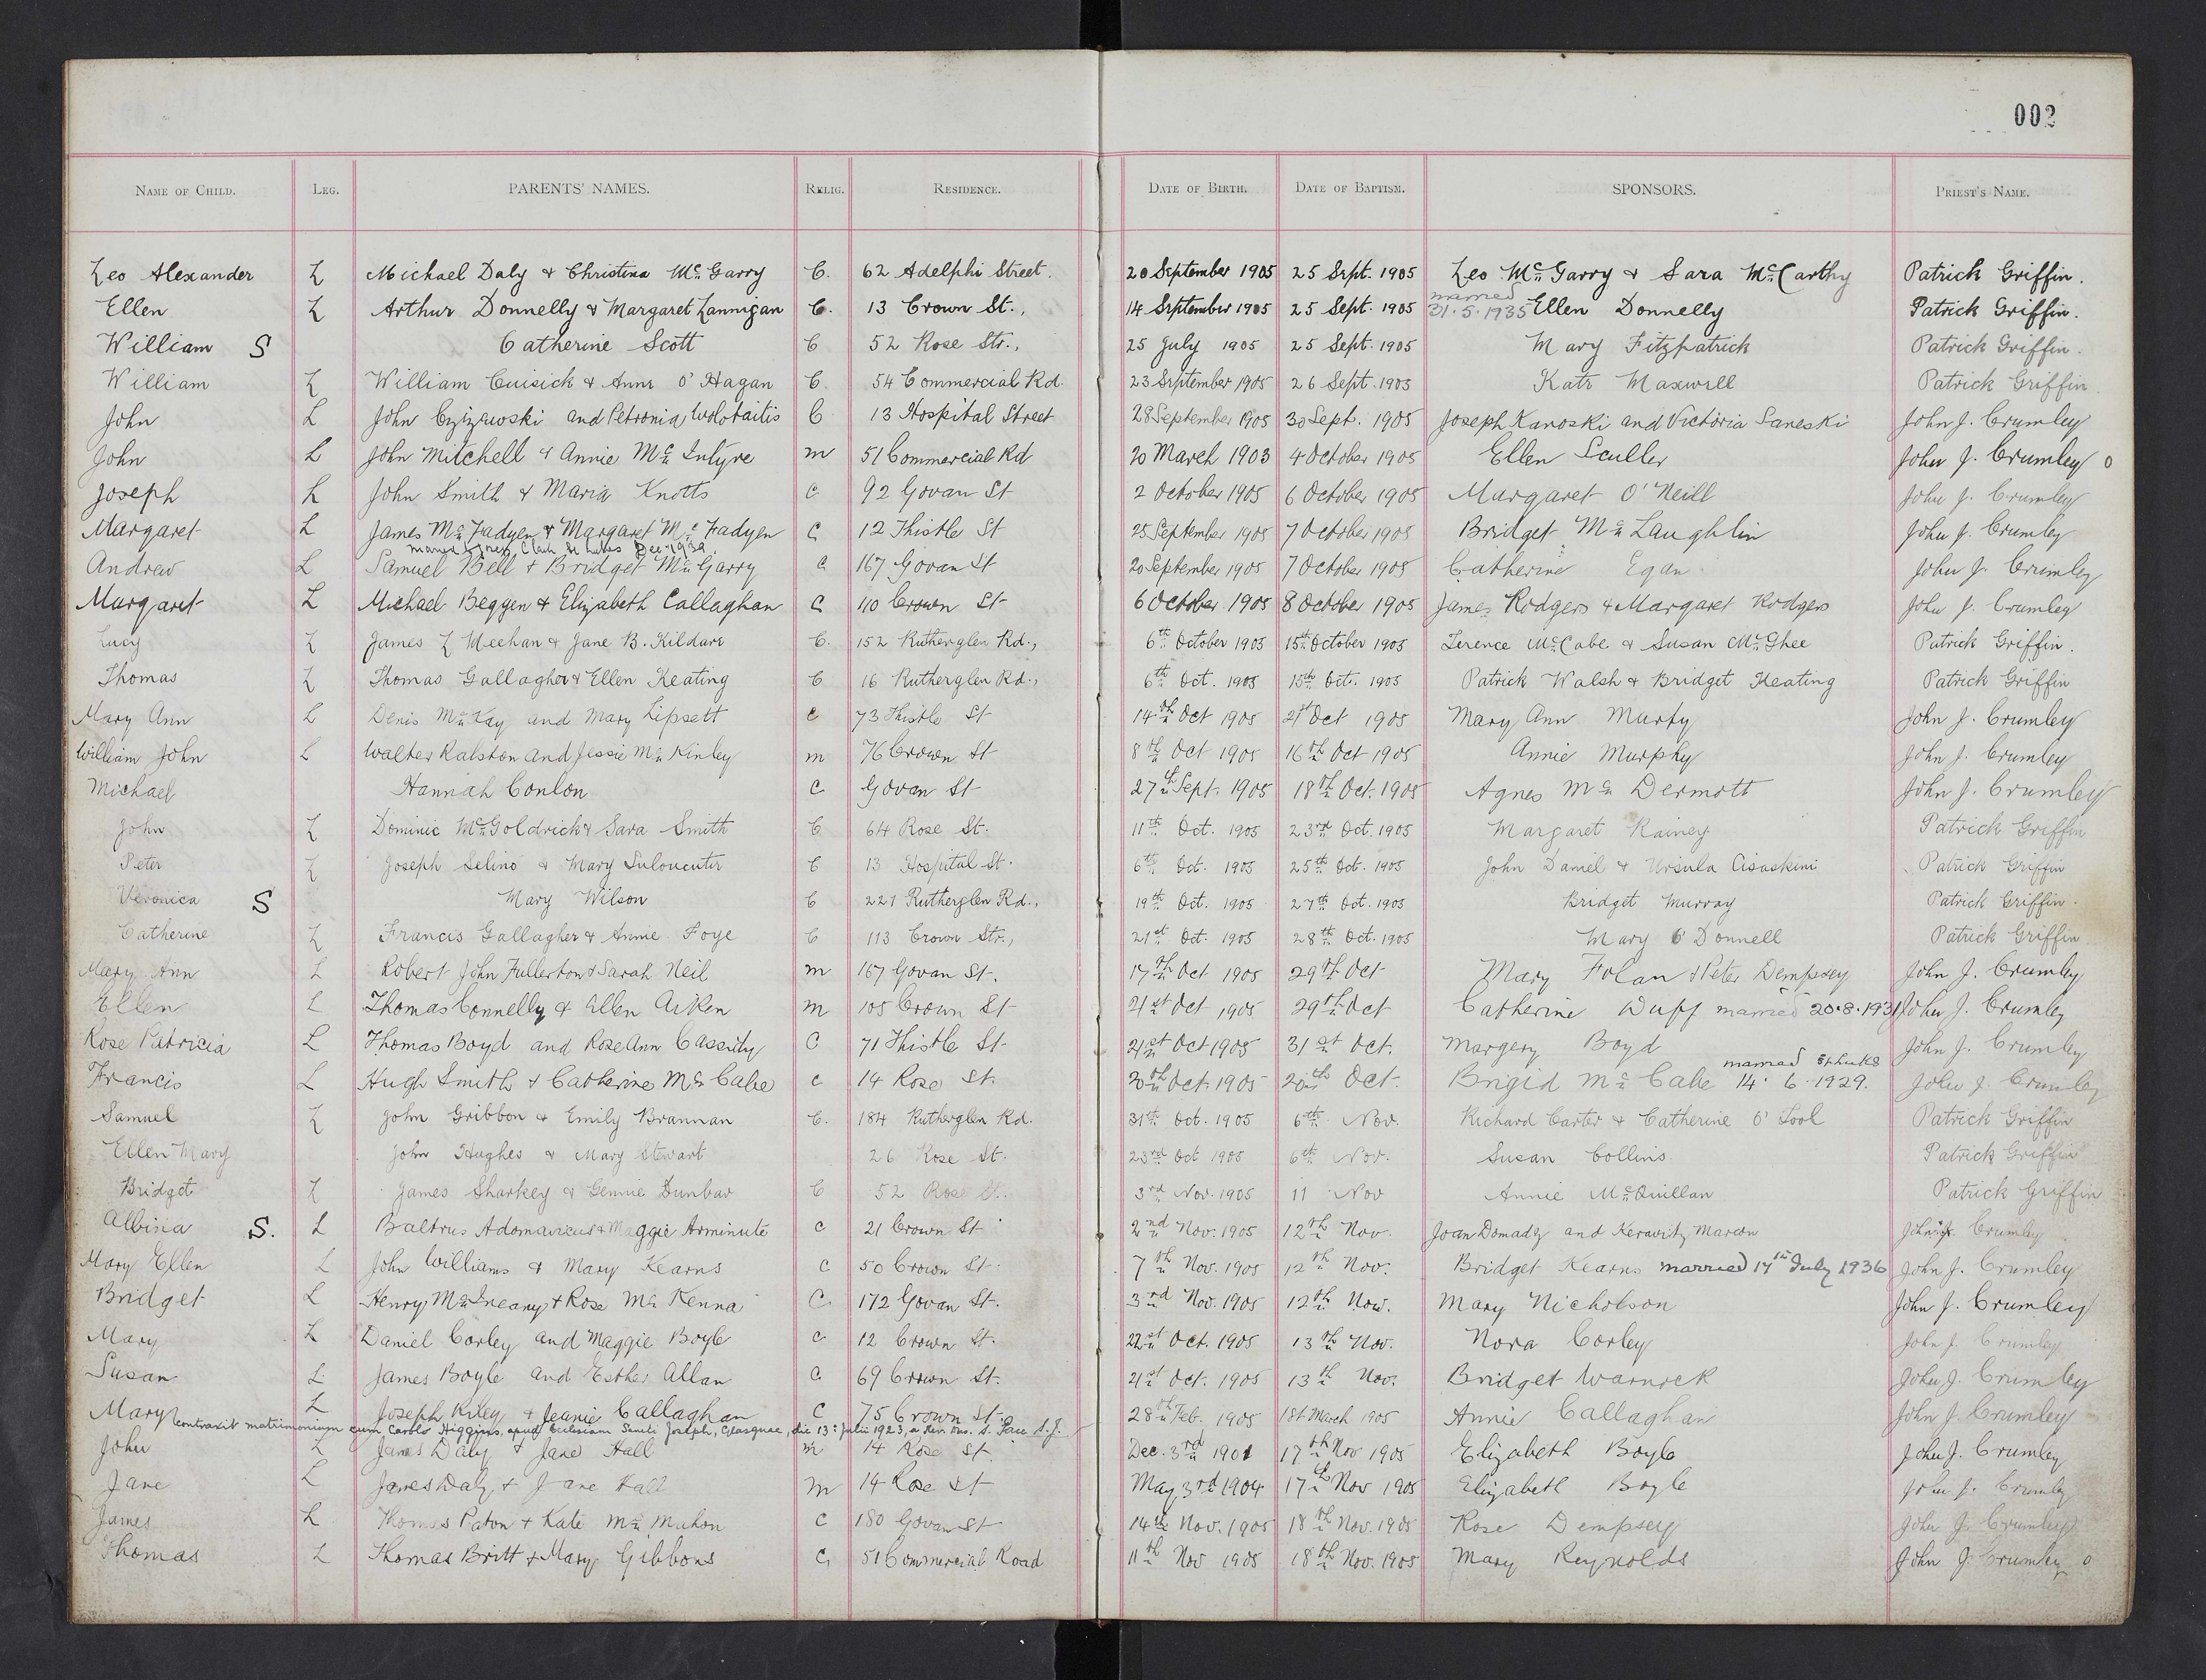 002
NAME OF CHILD. LEG. PARENTS' NAMES. RELIG. RESIDENCE. DATE OF BIRTH. DATE OF BAPTISM. SPONSORS. PRIEST'S NAME.
Leo Alexander L Michael Daly & Christina Mc Garry C. 62 Adelphi Street. 20 September 1905 25 Sept. 1905 Leo Mc Garry & Sara Mc Carthy Patrick Griffin.
married
Ellen L Arthur Donnelly & Margaret Lannigan C. 13 Crown St., 14 September 1905 25 Sept. 1905 31.5.1935 Ellen Donnelly Patrick Griffin.
William S Catherine Scott C 52 Rose Str., 25 July 1905 25 Sept. 1905 Mary Fitzpatrick Patrick Griffin.
William L William Cuisick & Anne O'Hagan C. 54 Commercial Rd. 23 September 1905 26 Sept. 1905 Kate Maxwell Patrick Griffin
John L John Czizewski and Petronia Wolotaitis C 13 Hospital Street 28 September 1905 30 Sept. 1905 Joseph Kanoski and Victoria Saneski John J. Crumley
John L John Mitchell & Annie Mc Intyre m 51 Commercial Rd 20 March 1903 4 October 1905 Ellen Sculler John J. Crumley o
Joseph L John Smith & Maria Knotts C 92 Govan St 2 October 1905 6 October 1905 Margaret O'Neill John J. Crumley
Margaret L James Mc Fadyen & Margaret Mc Fadyen C 12 Thistle St 25 September 1905 7 October 1905 Bridget Mc Laughlin John J. Crumley
Dec. 1932.
Andrew L Samuel Bell & Bridget Mc Garry C 167 Govan St 20 September 1905 7 October 1905 Catherine Egan John J. Crumley
Margaret L Michael Beggen & Elizabeth Callaghan C 110 Crown St 6 October 1905 8 October 1905 James Rodgers & Margaret Rodgers John J. Crumley
Lucy L James L Meehan & Jane B. Kildare C. 152 Rutherglen Rd., 6th October 1905 15th October 1905 Terence Mc Cabe & Susan Mc Ghee Patrick Griffin.
Thomas L Thomas Gallagher & Ellen Keating C 16 Rutherglen Rd., 6th Oct. 1905 15th Oct. 1905 Patrick Walsh & Bridget Keating Patrick Griffin
Mary Ann L Denis Mc Kay and Mary Lipsett C 73 Thistle St 14th Oct 1905 21st Oct 1905 Mary Ann Murfy John J. Crumley
William John L Walter Ralston and Jessie Mc Kinley m 76 Crown St 8th Oct 1905 16th Oct 1905 Annie Murphy John J. Crumley
Michael Hannah Conlon C Govan St 27th Sept. 1905 18th Oct. 1905 Agnes Mc Dermott John J. Crumley
John L Dominic Mc Goldrick & Sara Smith C 64 Rose St. 11th Oct. 1905 23rd Oct. 1905 Margaret Rainey Patrick Griffin
Peter L Joseph Selino & Mary Suloucuter C 13 Hospital St. 6th Oct. 1905 25th Oct. 1905 John Daniel & Ursula Cisaskini Patrick Griffin
Veronica S Mary Wilson C 221 Rutherglen Rd., 19th Oct. 1905 27th Oct. 1905 Bridget Murray Patrick Griffin.
Catherine L Francis Gallagher & Annie Foye C 113 Crown Str., 21st Oct. 1905 28th Oct. 1905 Mary O'Donnell Patrick Griffin
Mary Ann L Robert John Fullerton & Sarah Neil m 167 Govan St. 17th Oct 1905 29th Oct Mary Folan & Peter Dempsey John J. Crumley
Ellen L Thomas Connelly & Ellen Aiken m 105 Crown St 21st Oct 1905 29th Oct Catherine Duff married 20.8.1931 John J. Crumley
Rose Patricia L Thomas Boyd and Rose Ann Cassidy C 71 Thistle St 21st Oct 1905 31st Oct. Margery Boyd John J. Crumley
married St Lukes
Francis L Hugh Smith & Catherine Mc Cabe C 14 Rose St. 20th Oct. 1905 20th Oct. Brigid Mc Cabe 14.6.1929. John J. Crumley
Samuel L John Gribbon & Emily Brannan C. 184 Rutherglen Rd. 31st Oct. 1905 6th Nov. Richard Carter & Catherine O'Tool Patrick Griffin
Ellen Mary John Hughes & Mary Stewart 26 Rose St. 23rd Oct 1905 6th Nov. Susan Collins Patrick Griffin
Bridget L James Sharkey & Gennie Dunbar C 52 Rose St. 3rd Nov. 1905 11 Nov Annie Mc Quillan Patrick Griffin
Albina S. L Baltrus Adomavicus & Maggie Arminute C 21 Crown St 2nd Nov. 1905 12th Nov. Joan Domady and Keravitz Marcon John J. Crumley
Mary Ellen L John Williams & Mary Kearns C 50 Crown St. 7th Nov. 1905 12th Nov. Bridget Kearns married 17th July 1936 John J. Crumley
Bridget L Henry Mc Ineany & Rose Mc Kenna C. 172 Govan St. 3rd Nov. 1905 12th Nov. Mary Nicholson John J. Crumley
Mary L Daniel Corley and Maggie Boyle C 12 Crown St. 22st Oct. 1905 13th Nov. Nora Corley John J. Crumley
Susan L James Boyle and Esther Allan C 69 Crown St. 21st Oct. 1905 13th Nov. Bridget Warnock John J. Crumley
Mary L Joseph Kiley & Jeanie Callaghan C 75 Crown St. 28th Feb. 1905 1st March 1905 Annie Callaghan John J. Crumley
contraxit matrimonium cum Carolo Higgins, apud Ecclesiam Sancti Joseph, Glasguae, die 13a Julii 1923, a Rev. S.J.
John L James Daly & Jane Hall m 14 Rose St. Dec. 3rd 1901 17th Nov 1905 Elizabeth Boyle John J. Crumley
Jane L James Daly & Jane Hall m 14 Rose St May 3rd 1904 17th Nov 1905 Elizabeth Boyle John J. Crumley
James L Thomas Paton & Kate Mc Mahon C 180 Govan St 14th Nov. 1905 18th Nov. 1905 Rose Dempsey John J. Crumley
Thomas L Thomas Britt & Mary Gibbons C 51 Commercial Road 11th Nov 1905 18th Nov. 1905 Mary Reynolds John J. Crumley o